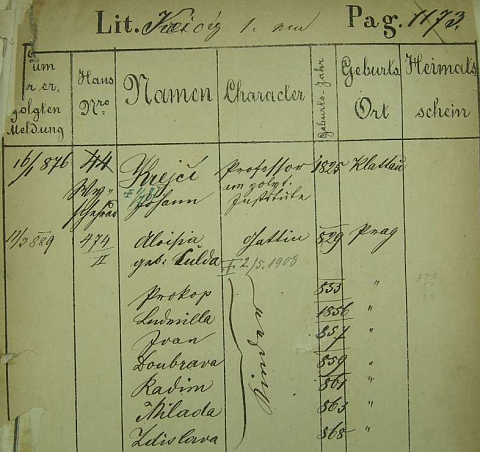 Lit. 1. Pag. 1173.
um
r er,
golgten
Meldung
Haus
Nro
Namen
Character
Geburts-Jahr
Geburts
Ort
Heimats
schein
16/1 876 44 Krejčí Professor 1825 Klattau
am polyt.
Johann Institute
11/3 889 474 Aloisia Gattin 829 Prag
II geb. Culda 2/5. 1908
Prokop 833 "
Ludmilla 1856 "
Ivan 857 "
Doubrava 859 "
Radim 861 "
Milada 863 "
Zdislava 868 "
Kinder